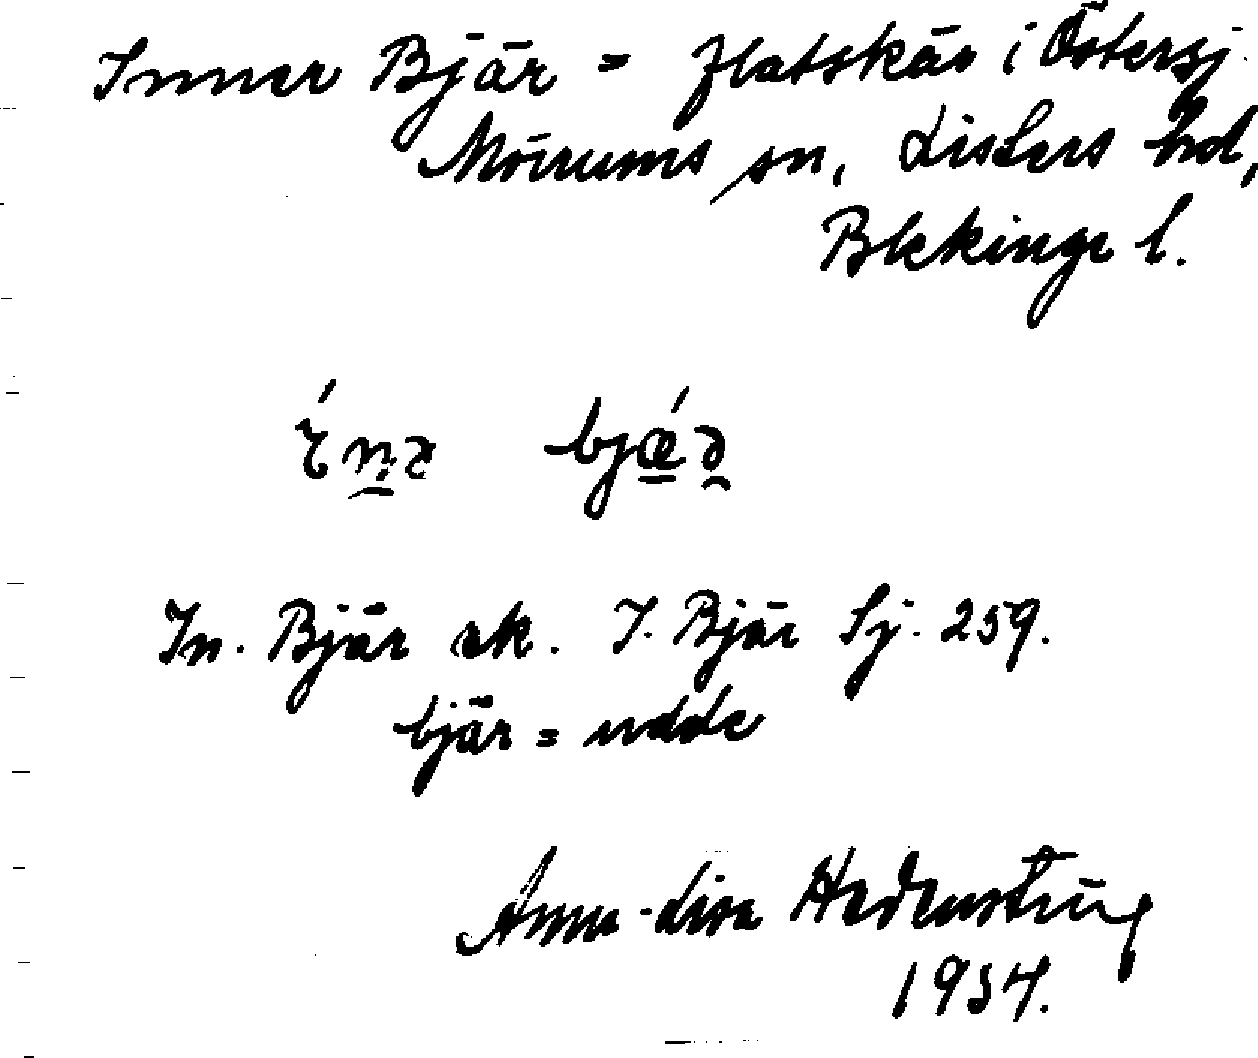 Inner Bjär = flatskär i Östersj.
Mörrums sn, Listers hd,
Blekinge l.
ínə bjǽ
In. Bjär ek. I. Bjär Sj. 259.
bjär = udde
Anna-Lisa Hedenström
1934.